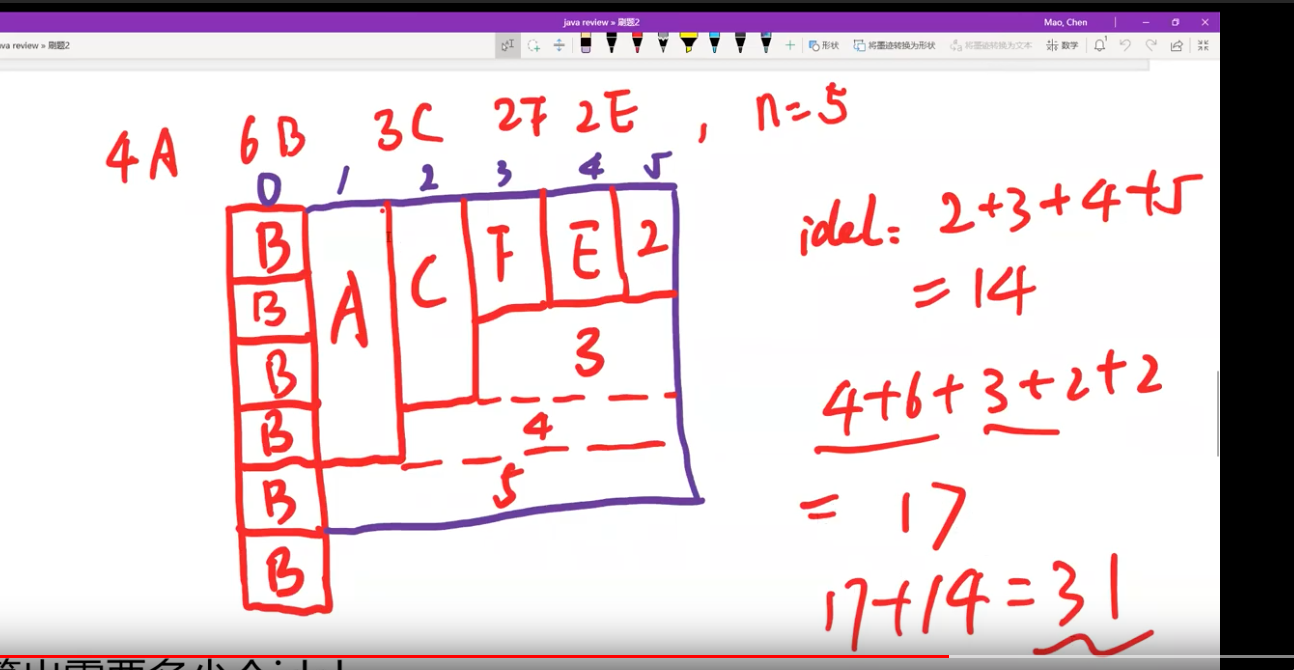 java review » 刷题2
Mao, Chen
va review » 刷题2
形状
将墨迹转换为形状
将墨迹转换为文本
数学
4A 6B 3C 2F 2E , n=5
0 1 2 3 4 5
B A C F E 2
B
B 3
B 4
B 5
B
idel: 2+3+4+5
=14
4+6+3+2+2
= 17
17+14=31